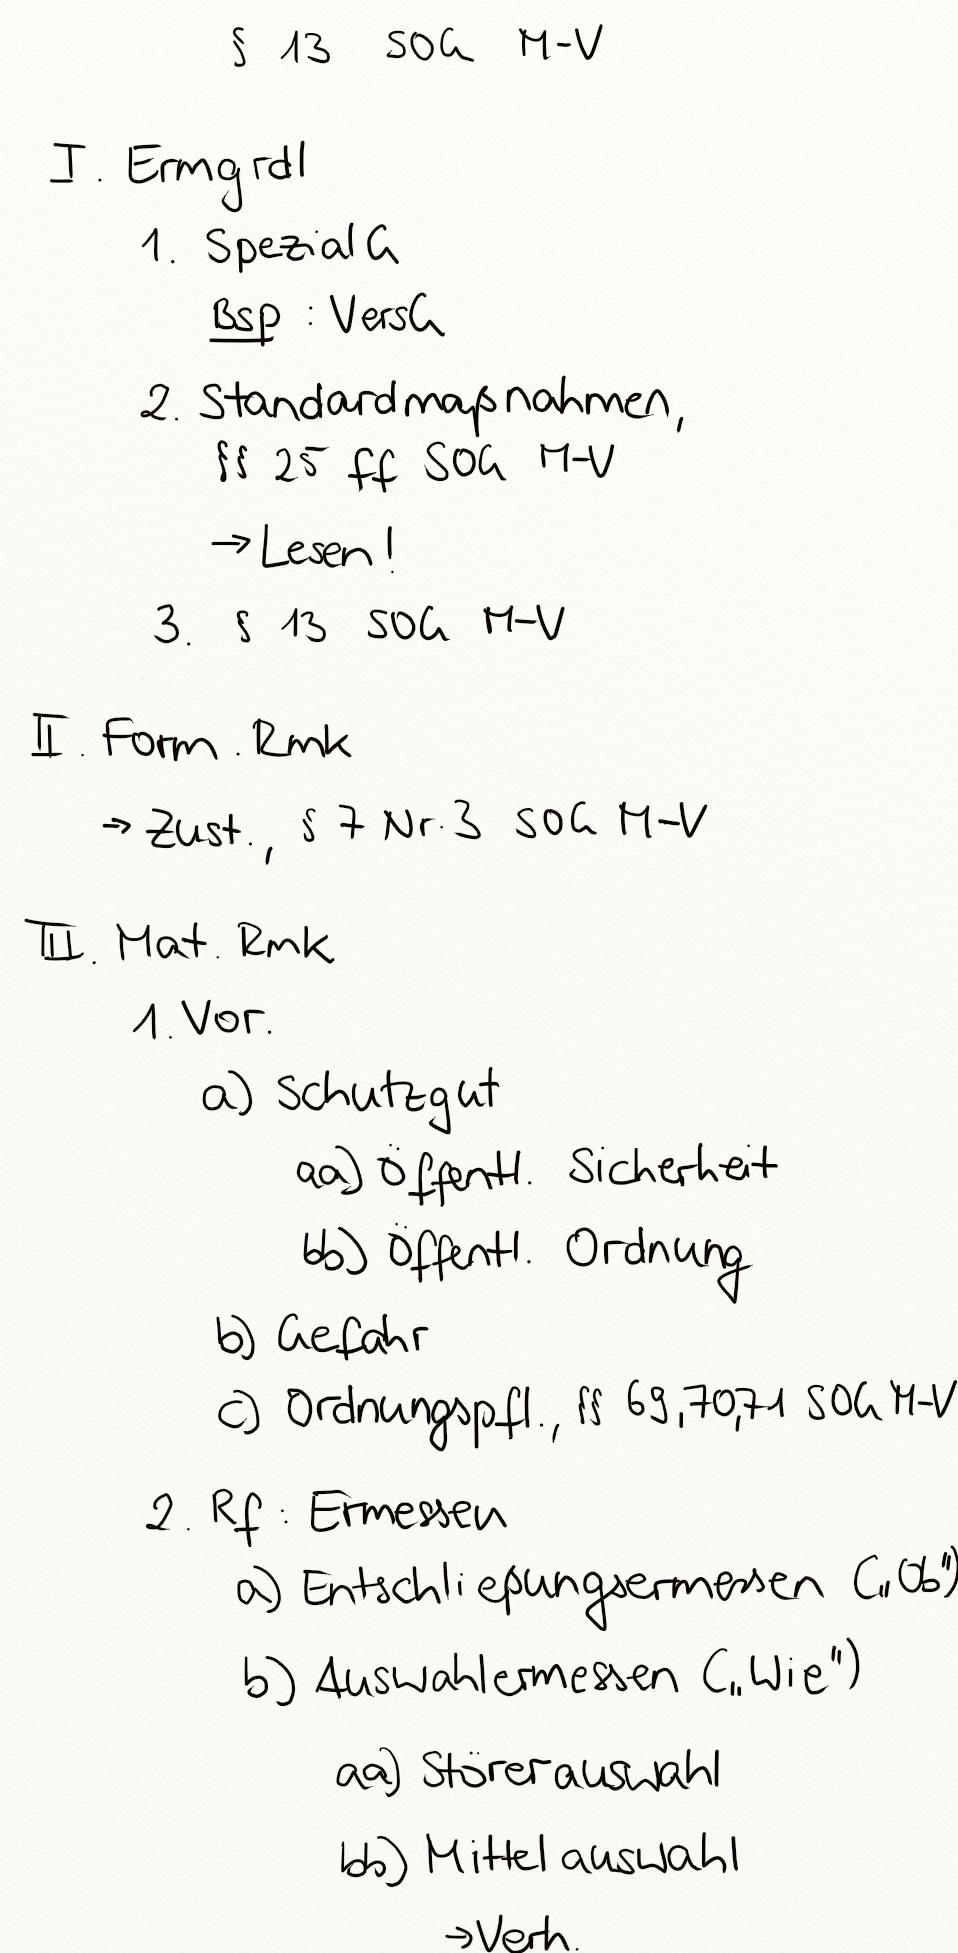 § 13 SOG M-V
I. Ermgrdl
1. SpezialG
Bsp : VersG
2. Standardmaßnahmen,
§§ 25 ff SOG M-V
→ Lesen!
3. § 13 SOG M-V
II. Form. Rmk
→ Zust., § 7 Nr. 3 SOG M-V
III. Mat. Rmk
1. Vor.
a) Schutzgut
aa) Öffentl. Sicherheit
bb) Öffentl. Ordnung
b) Gefahr
c) Ordnungspfl., §§ 69, 70, 71 SOG M-V
2. Rf : Ermessen
a) Entschließungsermessen („Ob")
b) Auswahlermessen („Wie")
aa) Störerauswahl
bb) Mittelauswahl
→ Verh.